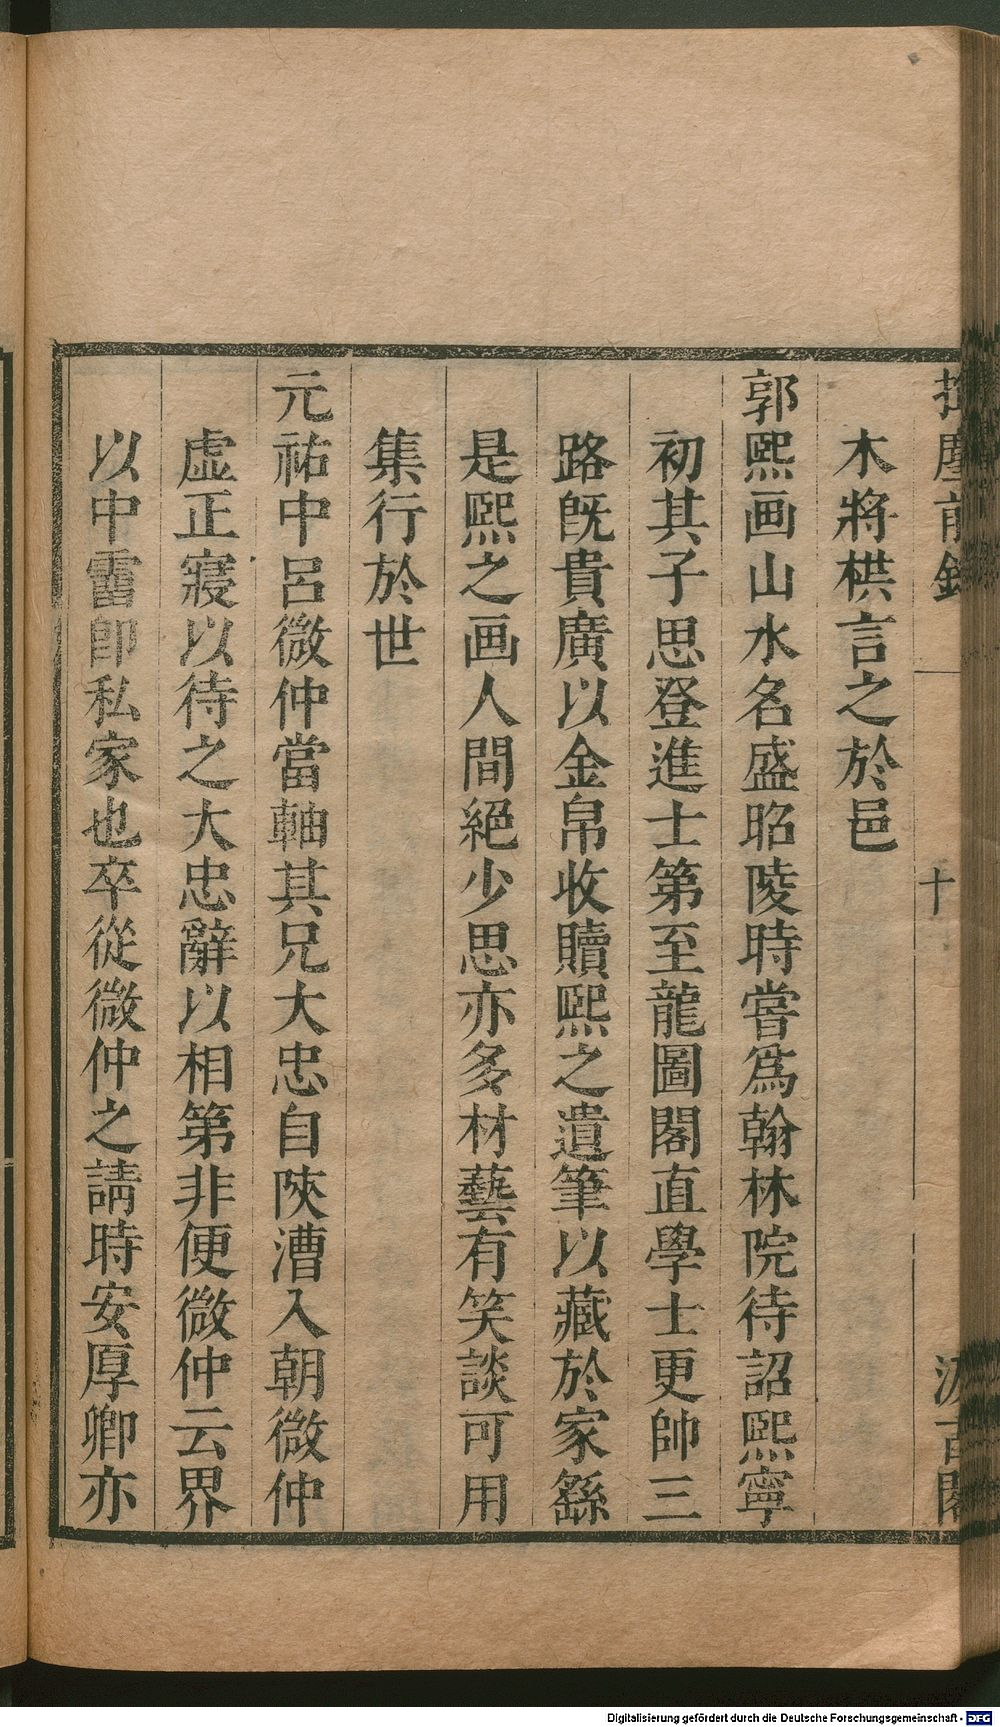 塵前錄 十
木將栱言之於邑
郭熙画山水名盛昭陵時嘗爲翰林院待詔熙寧
初其子思登進士第至龍圖閣直學士更帥三
路旣貴廣以金帛收贖熙之遺筆以藏於家繇
是熙之画人間絕少思亦多材藝有笑談可用
集行於世
元祐中呂微仲當軸其兄大忠自陝漕入朝微仲
虛正寢以待之大忠辭以相第非便微仲云界
以中霤卽私家也卒從微仲之請時安厚卿亦
Digitalisierung gefördert durch die Deutsche Forschungsgemeinschaft - DFG